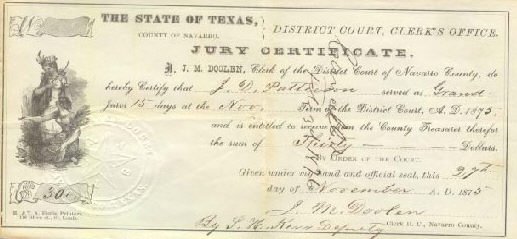 THE STATE OF TEXAS,
COUNTY OF NAVARRO.
DISTRICT COURT, CLERK'S OFFICE.
JURY CERTIFICATE.
I, J. M. DOOLEN, Clerk of the District Court of Navarro County, do
hereby Certify that J. D. served as Grand
Juror 15 days at the Nov. Term of the District Court, A. D. 1875,
and is entitled to receive from the County Treasurer therefor
the sum of Thirty Dollars.
BY ORDER OF THE COURT.
Given under my hand and official seal, this 27th
day of November A. D. 1875
30
J. M. Doolen
Clerk D. C., Navarro County.
By S. H. Kerr Deputy